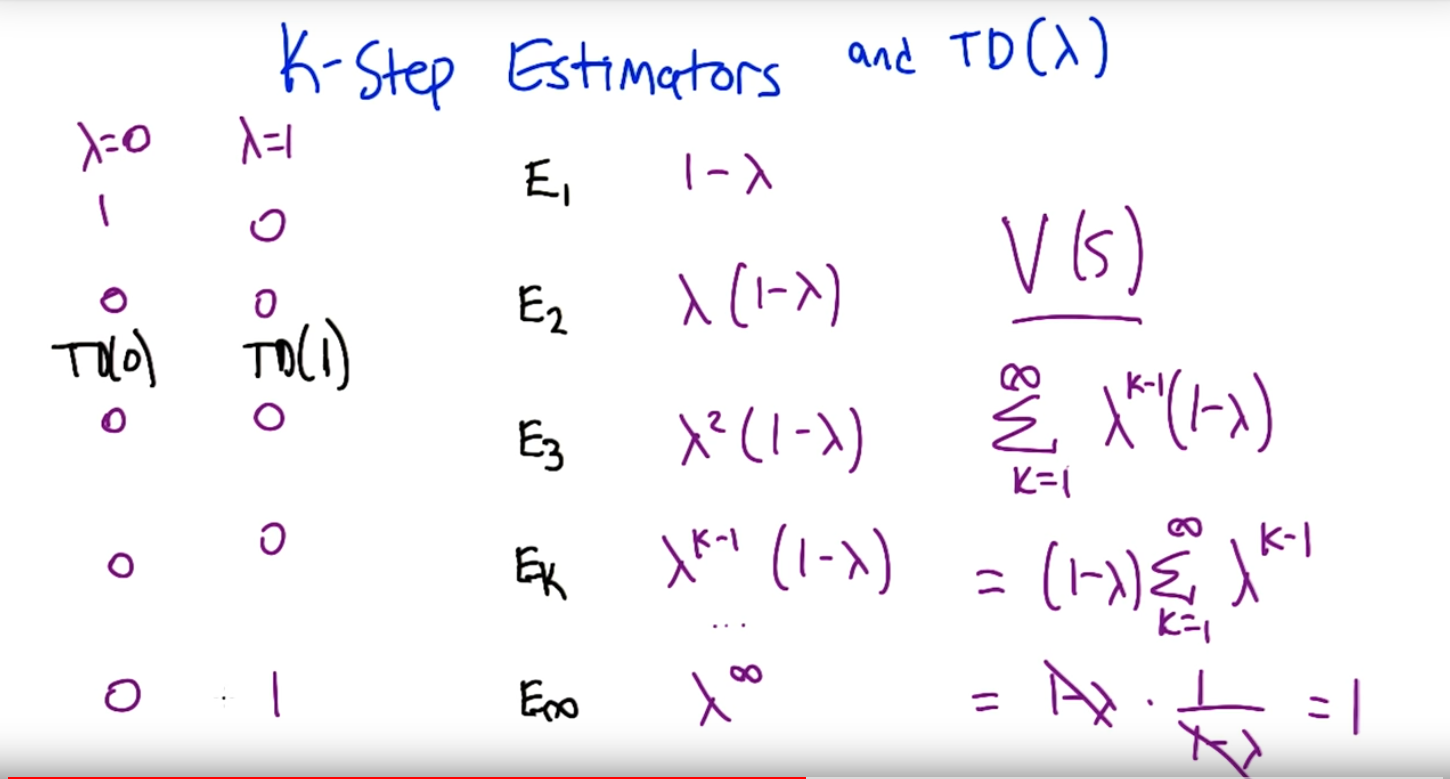 K-Step Estimators and TD(λ)
λ=0 λ=1
1 0 E₁ 1-λ
V(s)
0 0 E₂ λ(1-λ)
TD(0) TD(1)
0 0 E₃ λ²(1-λ) ∑_{K=1}^{∞} λ^{K-1}(1-λ)
0 0 E_K λ^{K-1} (1-λ) = (1-λ) ∑_{K=1}^{∞} λ^{K-1}
...
0 1 E_∞ λ^∞ = 1-λ · 1/(1-λ) = 1